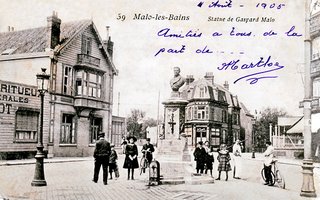 4 Août - 1905
59 Malo-les-Bains
Statue de Gaspard Malo
Amitiés à tous de la
part de ----
RITUEUX
ÉRALES
OT